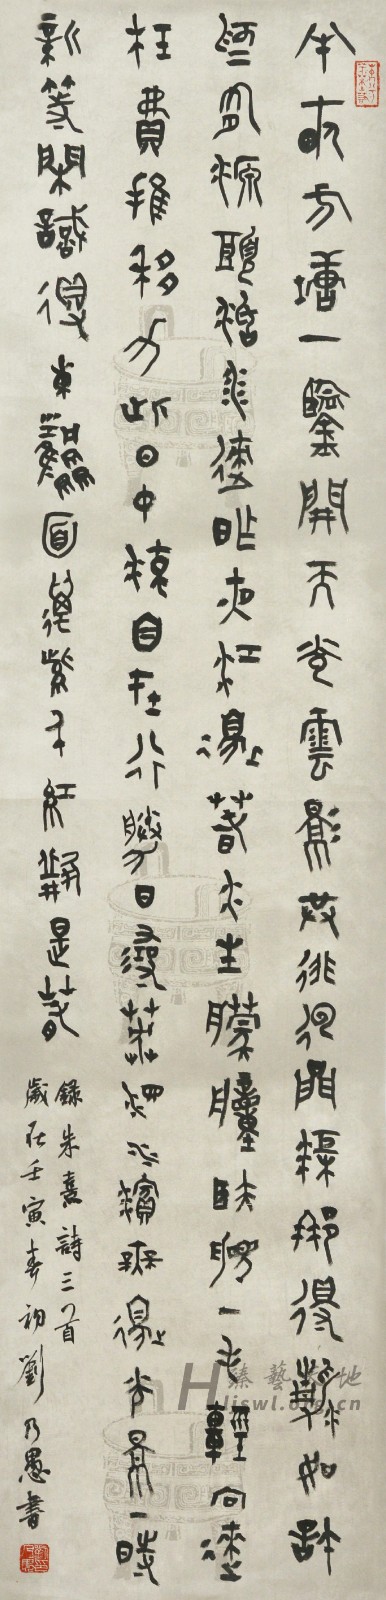 半畝方塘一鑒開天光雲影共徘徊問渠那得清如許
為有源頭活水來昨夜江邊春水生艨艟巨艦一毛輕向來
枉費推移力此日中流自在行勝日尋芳泗水濱無邊光景一時
新等閒識得東風面萬紫千紅總是春
錄朱熹詩三首
歲在壬寅春初劉乃愚書